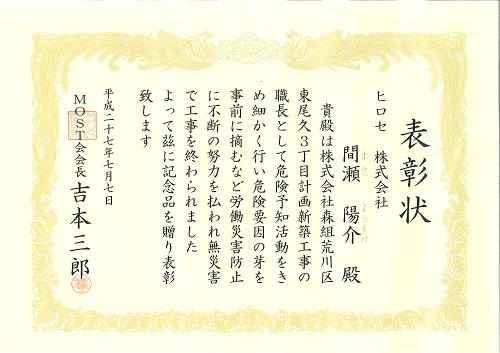 表彰状
ヒロセ 株式会社
間瀬 陽介 殿
貴殿は株式会社森組荒川区
東尾久3丁目計画新築工事の
職長として危険予知活動をき
め細かく行い危険要因の芽を
事前に摘むなど労働災害防止
に不断の努力を払われ無災害
で工事を終わられました
よって茲に記念品を贈り表彰
致します
平成二十七年七月七日
MOST会会長 吉本三郎